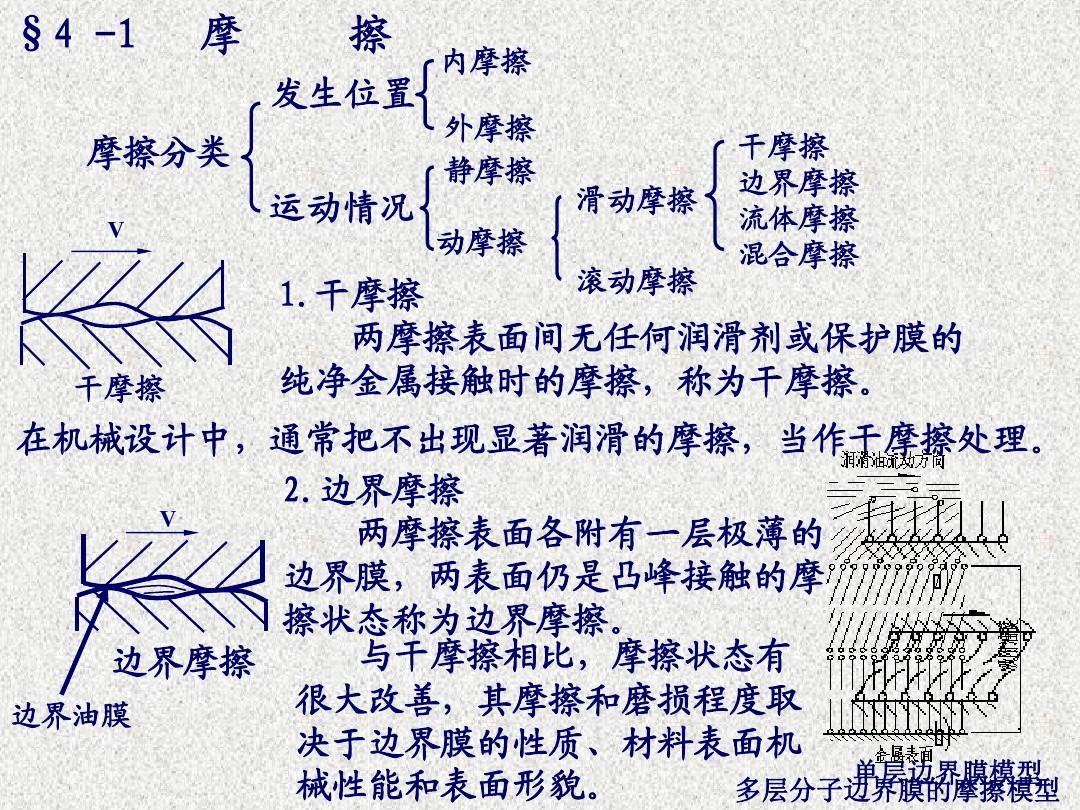 §4 -1 摩 擦
内摩擦
发生位置
外摩擦
摩擦分类
静摩擦
运动情况
动摩擦
干摩擦
边界摩擦
滑动摩擦
流体摩擦
混合摩擦
滚动摩擦
V
干摩擦
1.干摩擦
两摩擦表面间无任何润滑剂或保护膜的
纯净金属接触时的摩擦，称为干摩擦。
在机械设计中，通常把不出现显著润滑的摩擦，当作干摩擦处理。
2.边界摩擦
两摩擦表面各附有一层极薄的
边界膜，两表面仍是凸峰接触的摩
擦状态称为边界摩擦。
与干摩擦相比，摩擦状态有
很大改善，其摩擦和磨损程度取
决于边界膜的性质、材料表面机
械性能和表面形貌。
V
边界摩擦
边界油膜
润滑油流动方向
金属表面
单层边界膜模型
多层分子边界膜的摩擦模型